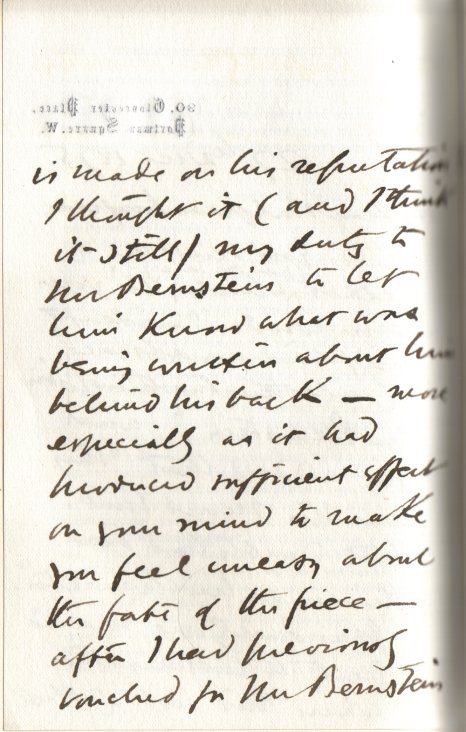 90. Gloucester Place.
Portman Square. W.
is made on his reputation
I thought it (and I think
it still) my duty to
Mr Bernstein to let
him know what was
being written about him
behind his back — more
especially as it had
produced sufficient effect
on your mind to make
you feel uneasy about
the fate of the piece —
after I had previously
vouched for Mr Bernstein